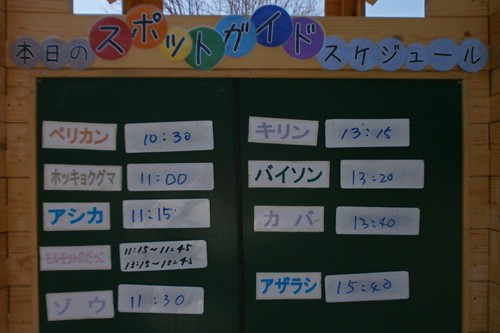 本日のスポットガイドスケジュール
ペリカン 10:30
ホッキョクグマ 11:00
アシカ 11:15
モルモットのだっこ 11:15~11:45
13:15~13:45
ゾウ 11:30
キリン 13:15
バイソン 13:20
カバ 13:40
アザラシ 15:40